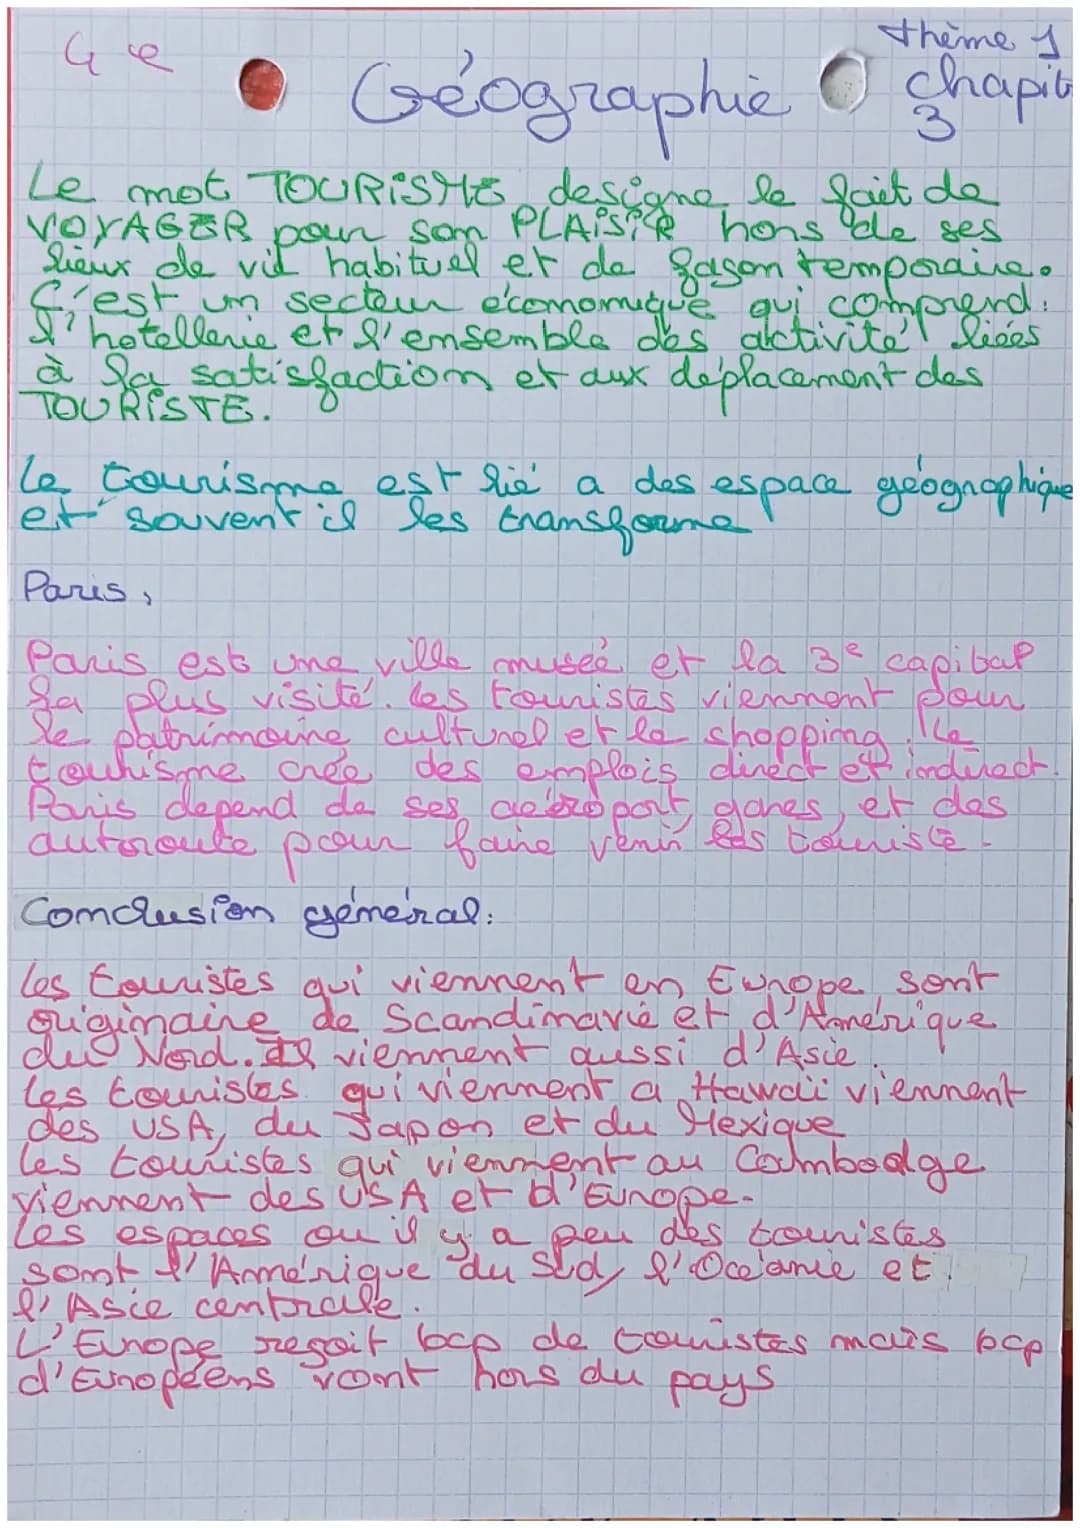 4e
Géographie
thème 1
chapit
3
Le mot TOURiSME designe le fait de
VOYAGER pour son PLAiSiR hors de ses
lieux de vie habituel et de façon temporaire.
C'est un secteur économique qui comprend:
l'hotellerie et l'ensemble des activité liées
à la satisfaction et aux déplacement des
TOURiSTE.
Le tourisme est lié a des espace géographique
et souvent il les transforme
Paris,
Paris est une ville museé et la 3e capital
la plus visité. Les touristes viennent pour
le patrimoine culturel et le shopping. Le
tourisme crée des emplois direct et indirect.
Paris depend de ses aéroport, gares, et des
autoroute pour faire venir les touriste.
Conclusion général:
Les touristes qui viennent en Europe sont
originaire de Scandinavie et d'Amérique
du Nord. Il viennent aussi d'Asie.
Les touristes qui viennent a Hawaii viennent
des USA, du Japon et du Mexique
Les touristes qui viennent au Coumbodge
viennent des USA et d'Europe.
Les espaces ou il y a peu des touristes
sont l'Amérique du Sud, l'Océanie et
l'Asie centrale.
L'Europe reçoit bcp de touristes mais bcp
d'Européens vont hors du pays